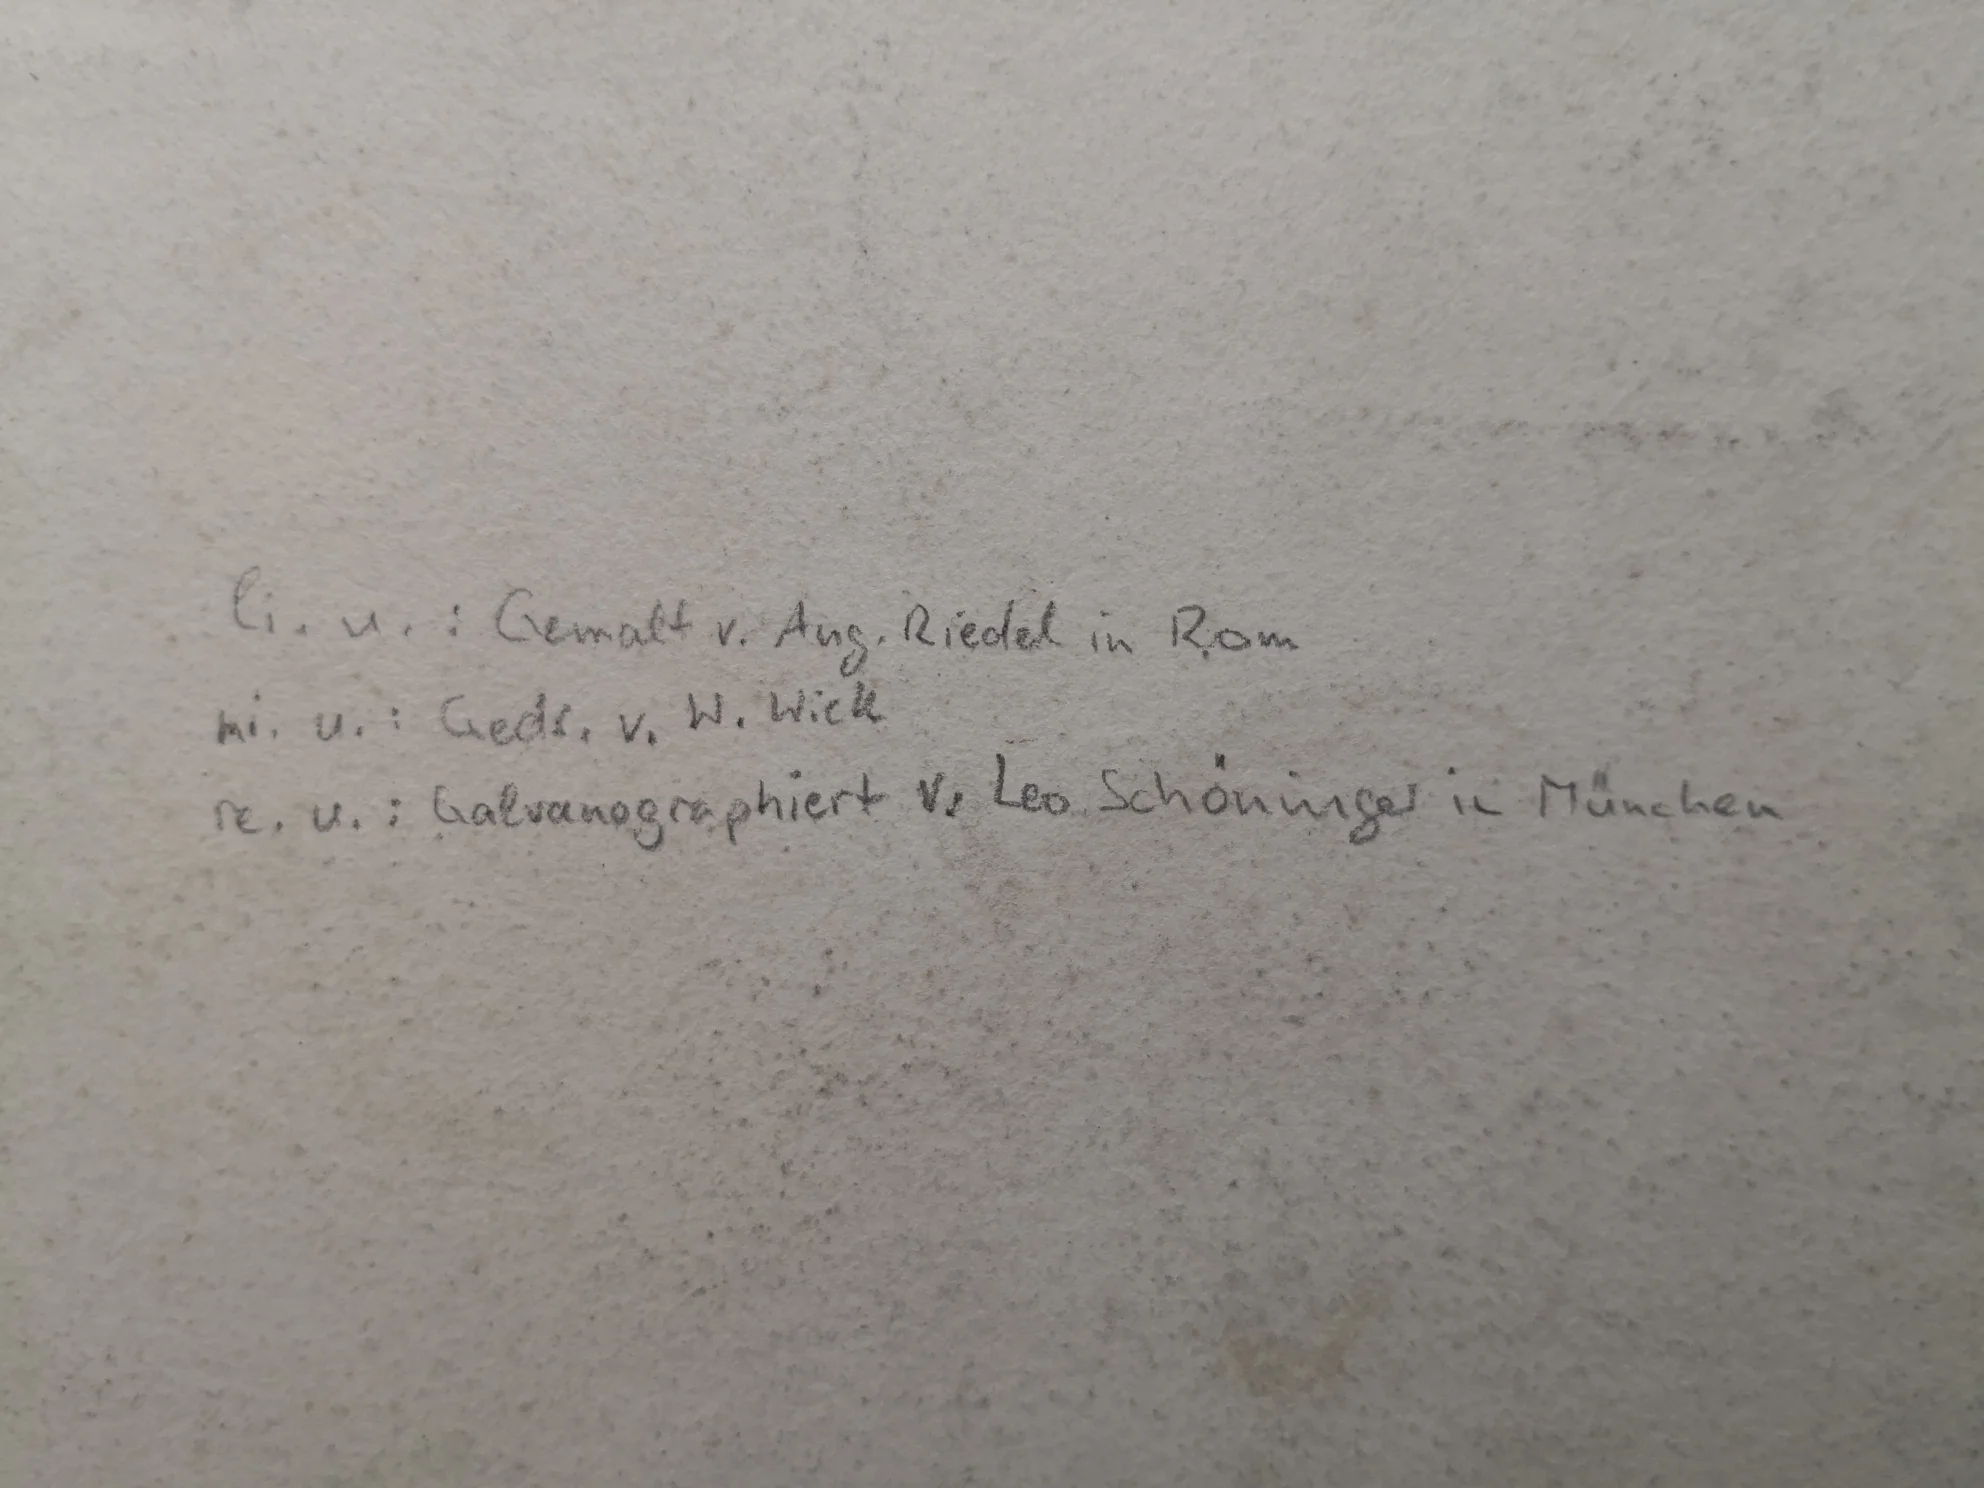 li. u.: Gemalt v. Aug. Riedel in Rom
mi. u.: Gedr. v. W. Wick
re. u.: Galvanographiert v. Leo Schöninger in München